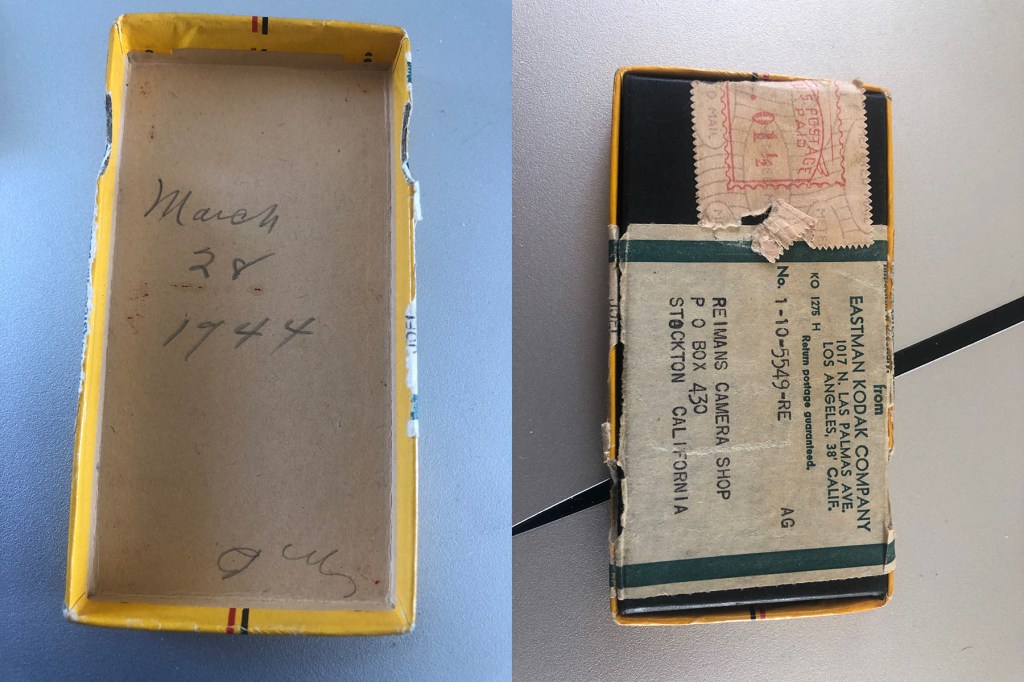 March
28
1944
U.S. POSTAGE
PAID
.01½
MAIL
from
EASTMAN KODAK COMPANY
1017 N. LAS PALMAS AVE.
LOS ANGELES, 38' CALIF.
KO 1275 H Return postage guaranteed.
No. 1-10-5549-RE AG
REIMANS CAMERA SHOP
P O BOX 430
STOCKTON CALIFORNIA